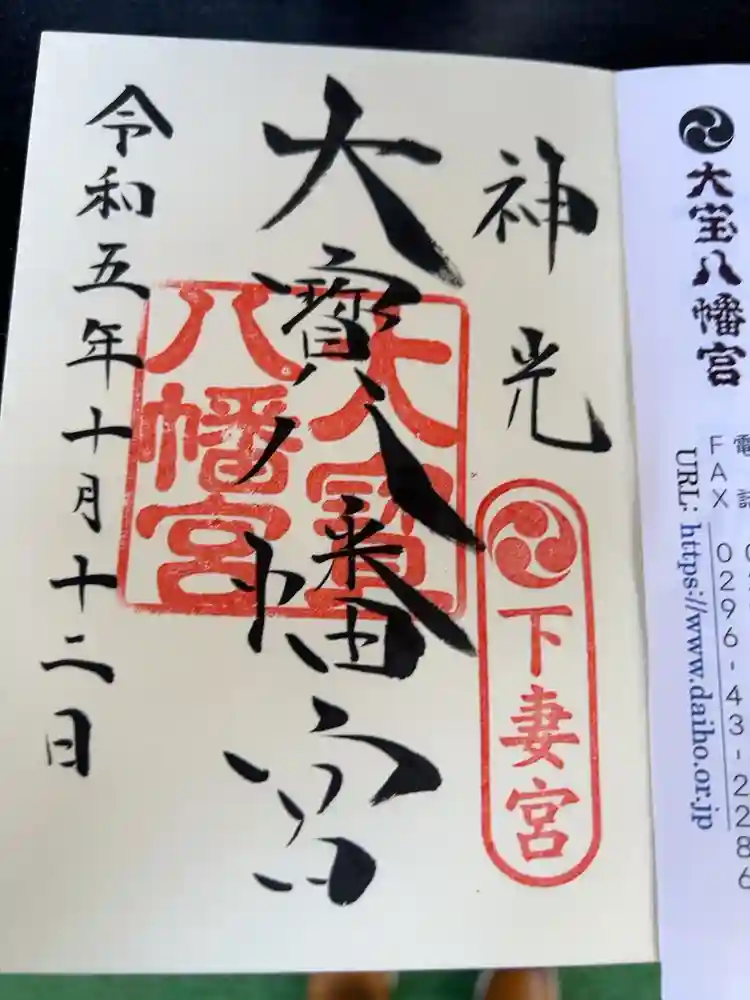 大宝八幡宮
電話
FAX 0296-43-2286
URL: https://www.daiho.or.jp
神光
下妻宮
大寳八幡宮
大寳八幡宮
令和五年十月十二日